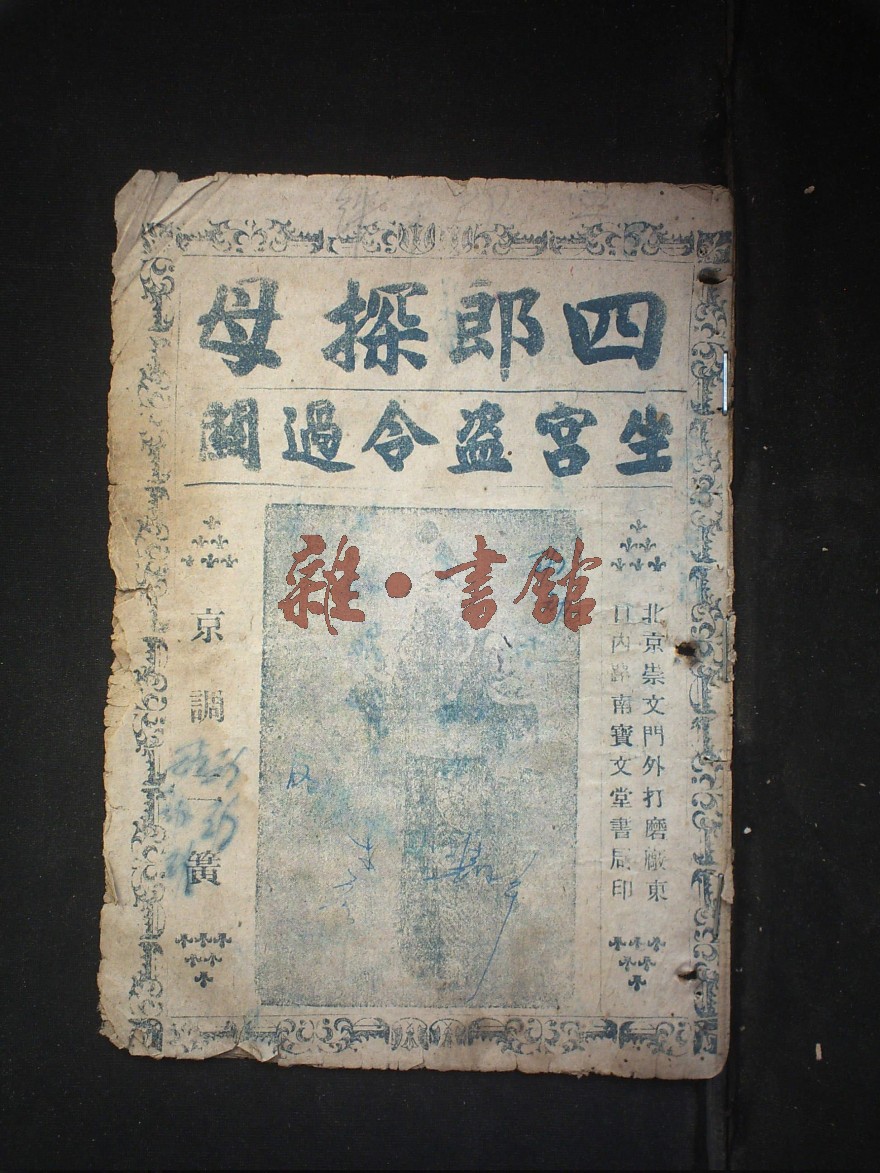 四郎探母
坐宮盗令過關
北京崇文門外打磨廠東
口內路南寶文堂書局印
京調二簧
雜·書館